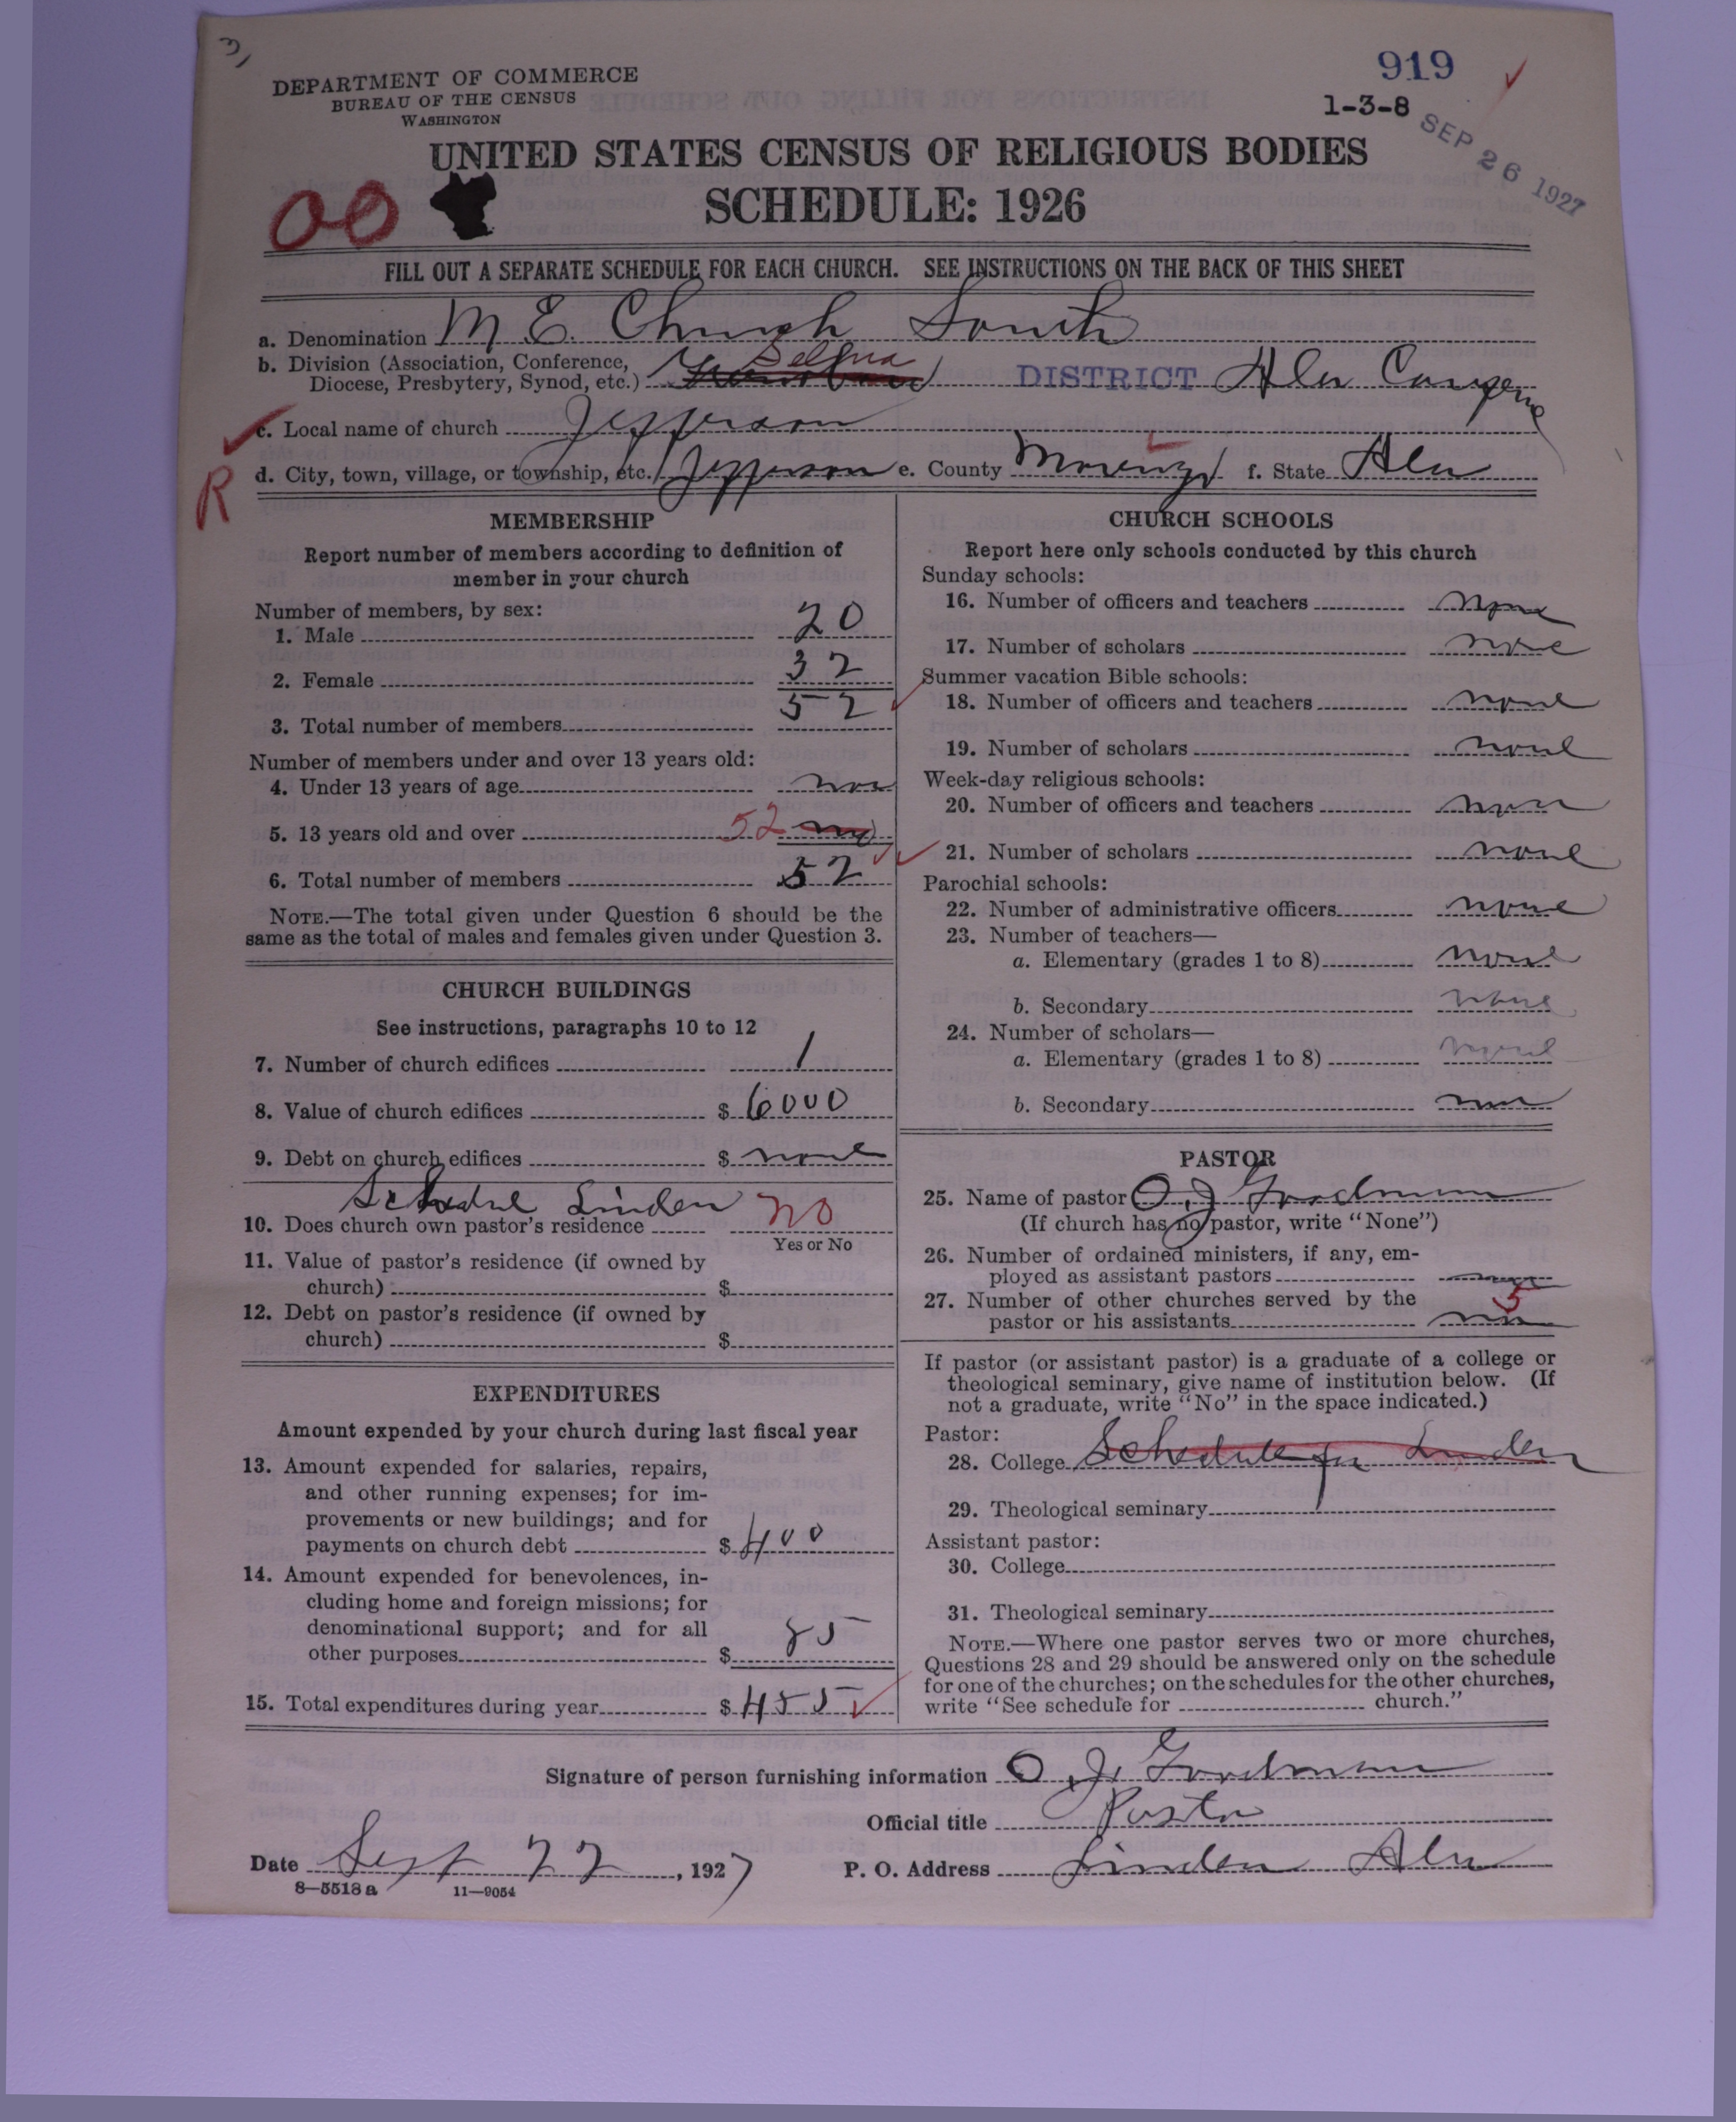 3)
919
1-3-8
SEP 26 1927
DEPARTMENT OF COMMERCE
BUREAU OF THE CENSUS
WASHINGTON
UNITED STATES CENSUS OF RELIGIOUS BODIES
SCHEDULE: 1926
OO
FILL OUT A SEPARATE SCHEDULE FOR EACH CHURCH. SEE INSTRUCTIONS ON THE BACK OF THIS SHEET
a. Denomination M E. Church South
b. Division (Association, Conference, Diocese, Presbytery, Synod, etc.) Selma DISTRICT Ala
c. Local name of church Jefferson
R
d. City, town, village, or township, etc. Jefferson e. County Marengo f. State Ala
MEMBERSHIP
Report number of members according to definition of
member in your church
Number of members, by sex:
1. Male 20
2. Female 32
3. Total number of members 52
Number of members under and over 13 years old:
4. Under 13 years of age non
5. 13 years old and over 52
6. Total number of members 52
NOTE.—The total given under Question 6 should be the
same as the total of males and females given under Question 3.
CHURCH BUILDINGS
See instructions, paragraphs 10 to 12
7. Number of church edifices 1
8. Value of church edifices $ 6000
9. Debt on church edifices $ none
Linden
10. Does church own pastor's residence no
Yes or No
11. Value of pastor's residence (if owned by
church) $
12. Debt on pastor's residence (if owned by
church) $
EXPENDITURES
Amount expended by your church during last fiscal year
13. Amount expended for salaries, repairs,
and other running expenses; for im-
provements or new buildings; and for
payments on church debt $ 400
14. Amount expended for benevolences, in-
cluding home and foreign missions; for
denominational support; and for all
other purposes $ 85
15. Total expenditures during year $ 485
CHURCH SCHOOLS
Report here only schools conducted by this church
Sunday schools:
16. Number of officers and teachers none
17. Number of scholars none
Summer vacation Bible schools:
18. Number of officers and teachers none
19. Number of scholars none
Week-day religious schools:
20. Number of officers and teachers none
21. Number of scholars none
Parochial schools:
22. Number of administrative officers none
23. Number of teachers—
a. Elementary (grades 1 to 8) none
b. Secondary none
24. Number of scholars—
a. Elementary (grades 1 to 8) none
b. Secondary none
PASTOR
25. Name of pastor O J Goodman
(If church has no pastor, write "None")
26. Number of ordained ministers, if any, em-
ployed as assistant pastors none
27. Number of other churches served by the
pastor or his assistants 5
If pastor (or assistant pastor) is a graduate of a college or
theological seminary, give name of institution below. (If
not a graduate, write "No" in the space indicated.)
Pastor:
28. College Schedule for Linden
29. Theological seminary
Assistant pastor:
30. College
31. Theological seminary
NOTE.—Where one pastor serves two or more churches,
Questions 28 and 29 should be answered only on the schedule
for one of the churches; on the schedules for the other churches,
write "See schedule for church."
Signature of person furnishing information O. J. Goodman
Official title Pastor
Date Sept 22, 1927 P. O. Address Linden Ala
8—5518 a 11—9054